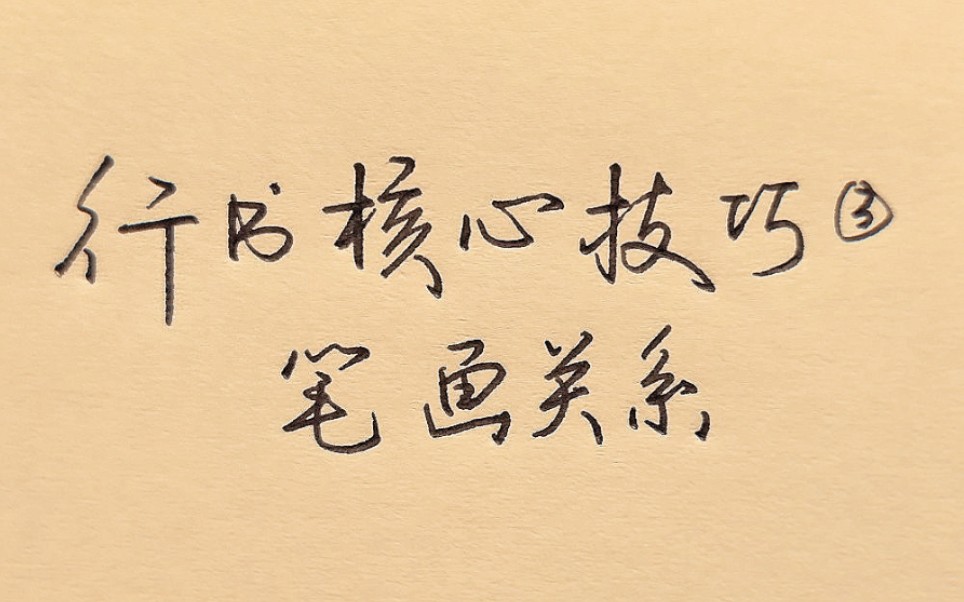 行书核心技巧③
笔画关系